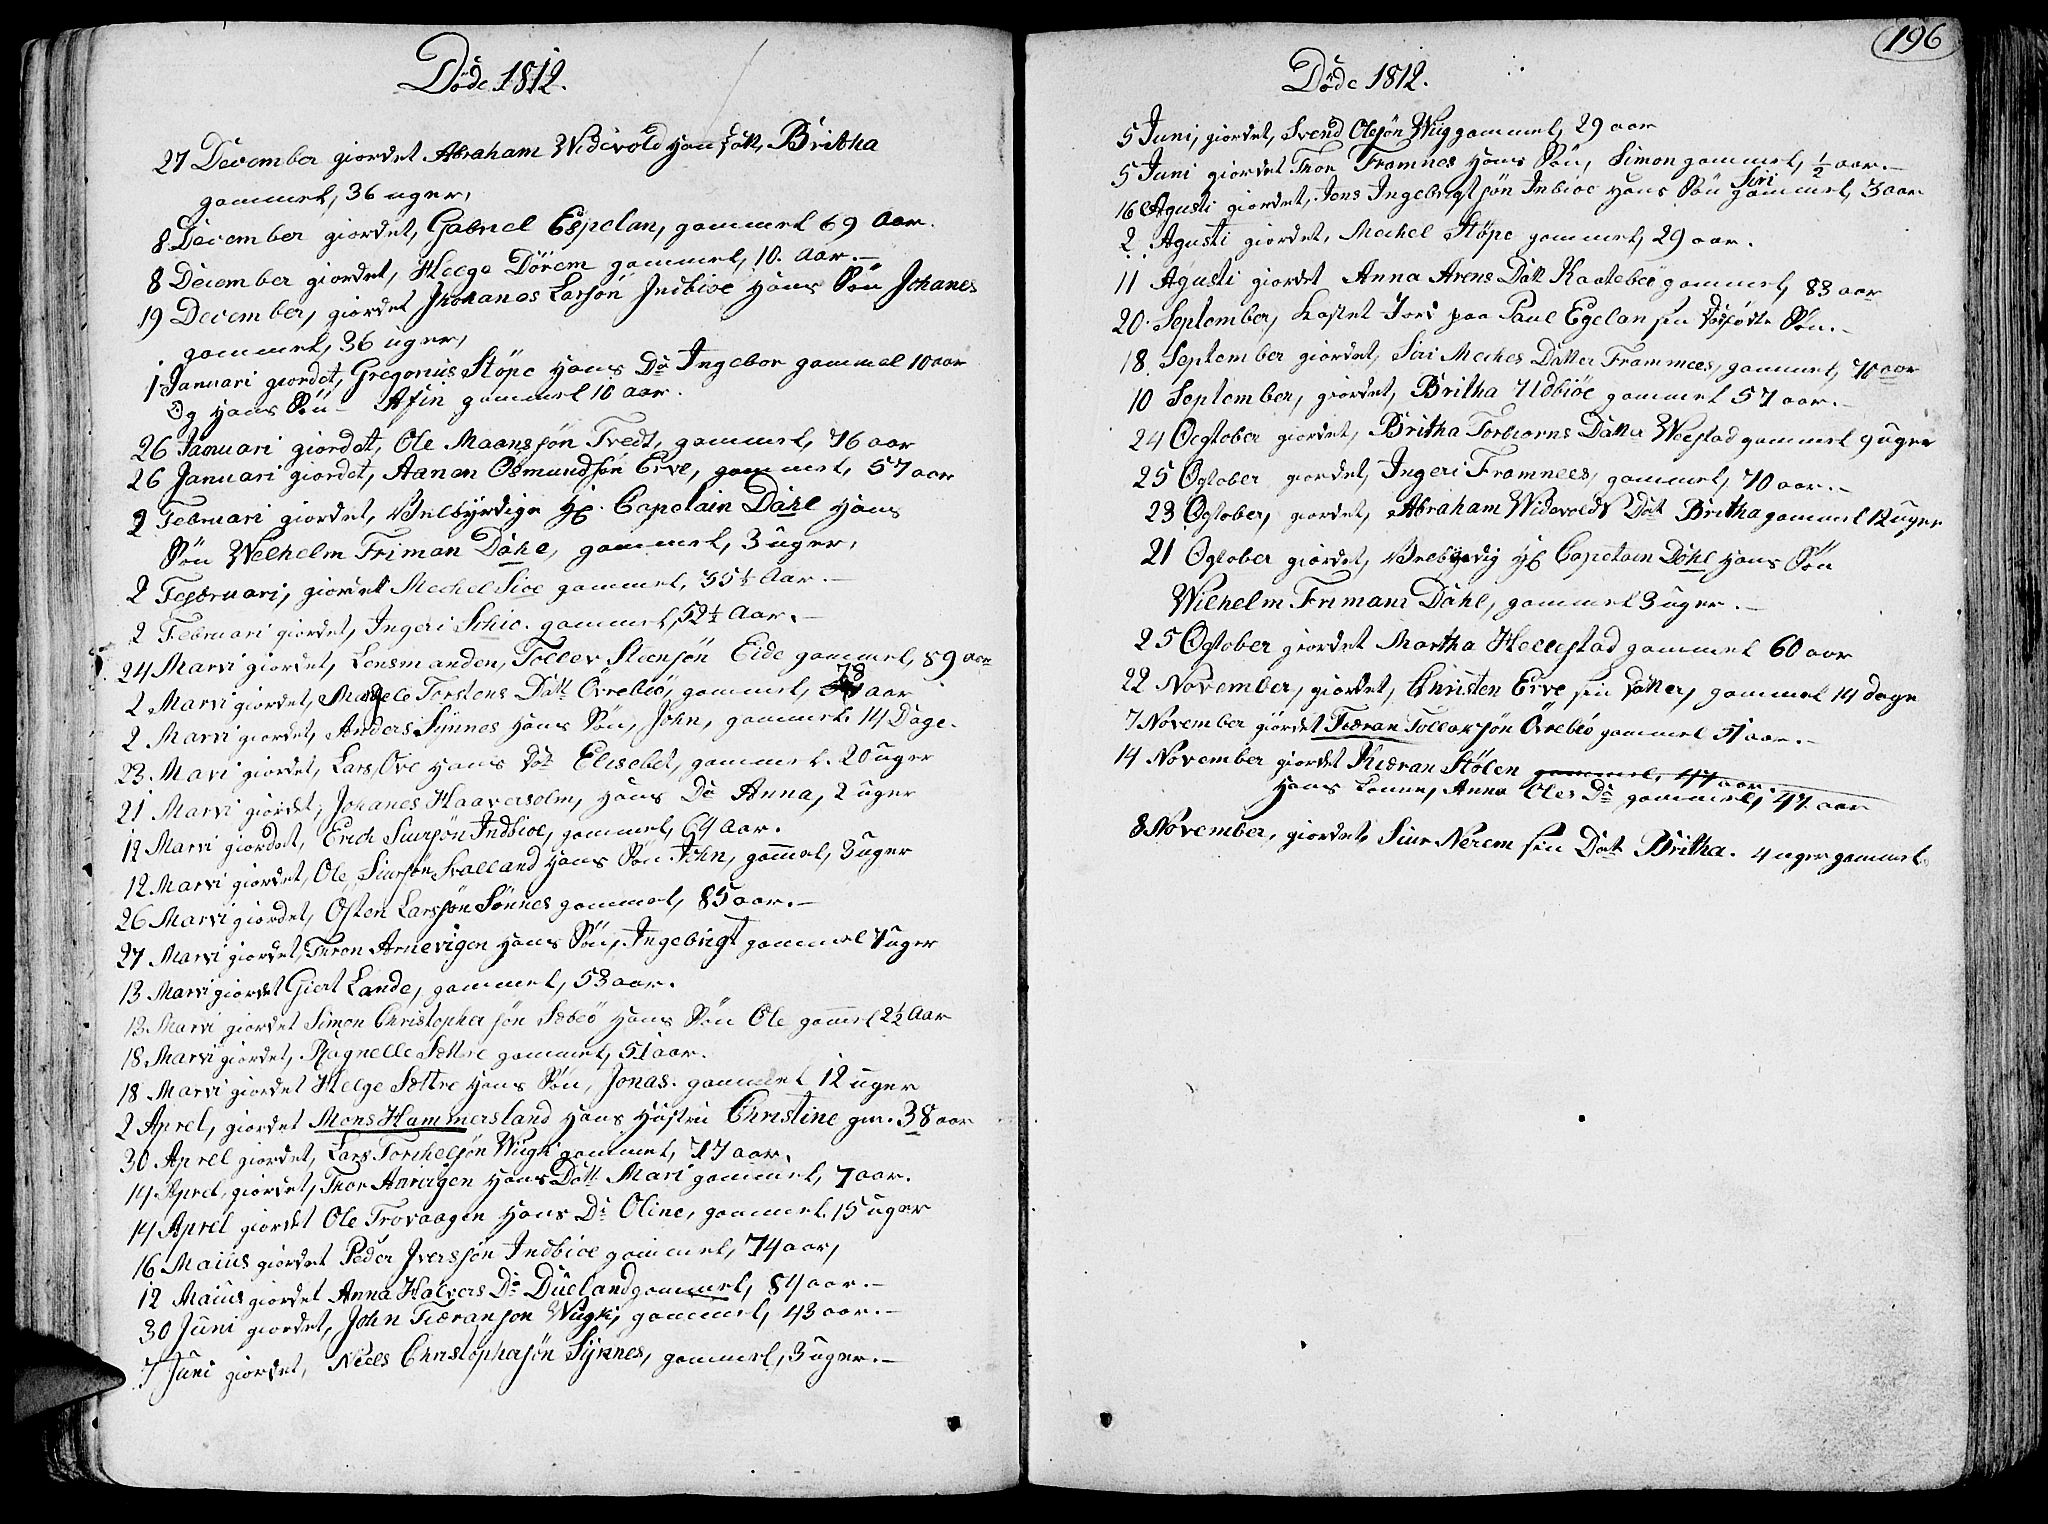 Døde 1812.
27 December giordet Abraham Widevold Hans Datt. Britha
gammel, 36 uger,
8 December giordet, Gabriel Espelan, gammel 69 Aar.
8 December giordet, Helge Dörem gammel, 10. Aar.-
19 December, giordet Johanes Larsön Indbioe Hans Sön Johanes
gammel, 36 uger,
1 Januari giordet, Gregorius Stöpe Hans Do Ingebor gammel 10 aar
Og Hans Sön - Afin gammel 10 aar.
26 Januari giordet, Ole Maansøn Tvedt, gammel, 76 aar
26 Januari giordet, Aanen Osmundsön Erve, gammel, 57 aar
2 Februari giordet, Velbyrdige Hr. Capetain Dahl Hans
Sön Welhelm Friman Dahl, gammel, 3 uger,
2 Februari, giordet Mechel Sioe gammel, 35½ Aar.-
2 Februari giordet, Ingeri Schio. gammel, 52½ Aar.-
24 Marvi giordet, Lensmanden, Tollev Steensön Eide gammel, 89 aar
2 Marvi giordet, Torstens Datt Övrebiö, gammel, 78 aar
2 Marvi giordet, Anders Synnes Hans Sön, John, gammel. 14 Dage.
23 Mavi giordet, Lars Ove Hans Dot Elisebet, gammel. 20 uger
21 Marvi giordet, Johanes Haaversolm, Hans Do Anna, 2 uger
12 Marvi giordet, Erich Siursön Indbioe, gammel, 64 Aar.
12 Marvi giordet, Ole Siursön Svalland Hans Sön John, gam̄el, 3 uger
26 Marvi giordet, Osten Larssön Sönnes gammel, 85 aar.-
27 Marvi giordet, Thron Arnevigen Hans Sön, Ingebrigt gammel 7 uger
13 Marvi giordet Giert Lande, gammel, 53 aar.
13 Marvi giordet Simon Christopher sön Sæbeö Hans Sön Ole gam̄el 2½ Aar
18 Marvi giordet, Ragnelle Sættre gammel, 51 aar.
18 Marvi giordet Helge Sættre Hans Sön, Jonas. gammel 12 uger
2 Aprel, giordet Mons Hammersland Hans Hustru Christine gm. 38 aar
30 Aprel giordet, Lars Torchelsön Wugh gammel, 77 aar.
14 Aprel, giordet, Thor Anvigen Hans Datt Mari gammel, 7 aar.
14 Aprel giordet Ole Trovaagen Hans Do Oline, gammel. 15 uger
16 Maius giordet Peder Iversön Indbioe gammel, 74 aar,
12 Maius giordet Anna Halvers Do Dueland gammel, 84 aar.-
30 Juni giordet, John Tieransön Wugh, gammel, 43 aar.-
7 Juni giordet, Niels Christophersön Synnes, gammel, 3 uger.-
196
Døde 1812.
5 Juni, giordet, Svend Olesön Wiig gammel, 29 aar
5 Juni giordet Thor Framnes Hans Sön, Simon gammel, ½ aar.-
Siri
16 Agusti giordet, Jens Ingebrigtsön Inbioe Hans Sön gammel, 3 aar
2. Agusti giordet, Mechel Stöpe gammel, 29 aar.
11 Agusti giordet Anna Arens Datt Kaatebeö gammel, 83 aar
20. September, kastet Jord paa Paul Egelan sin Sön.-
18. September giordet, Siri Meches Datter Framnees, gammel, 70 aar
10 September, giordet, Britha Udbiöe gammel 57 aar.-
24 Ocgtober giordet, Britha Torbiorns Datter Weestad gammel 9 uger
25 Ogtober giordet, Ingeri Framnees, gammel, 70 aar.-
23 Ogtober, giordet, Abraham Widevolds Dat Britha gammel 12 uger
21 Ogtober giordet, Velbyrdig Hr Capetain Dahl Hans Sön
Wilhelm Frimann Dahl, gammel 3 uger.-
25 Ogtober giordet Martha Hellestad gammel 60 aar
22 November, giordet, Christen Erve sin Datter, gammel 14 Dage
7 November giordet Tieran Tollaksön Övrebiö gammel 51 aar.-
14 November giordet Kieran Stölen gammel, 47 aar.
Hans Konne, Anna Oles Do gammel, 47 aar
8 November, giordet, Siur Nerem sin Dat Britha. 4 uger gammel.